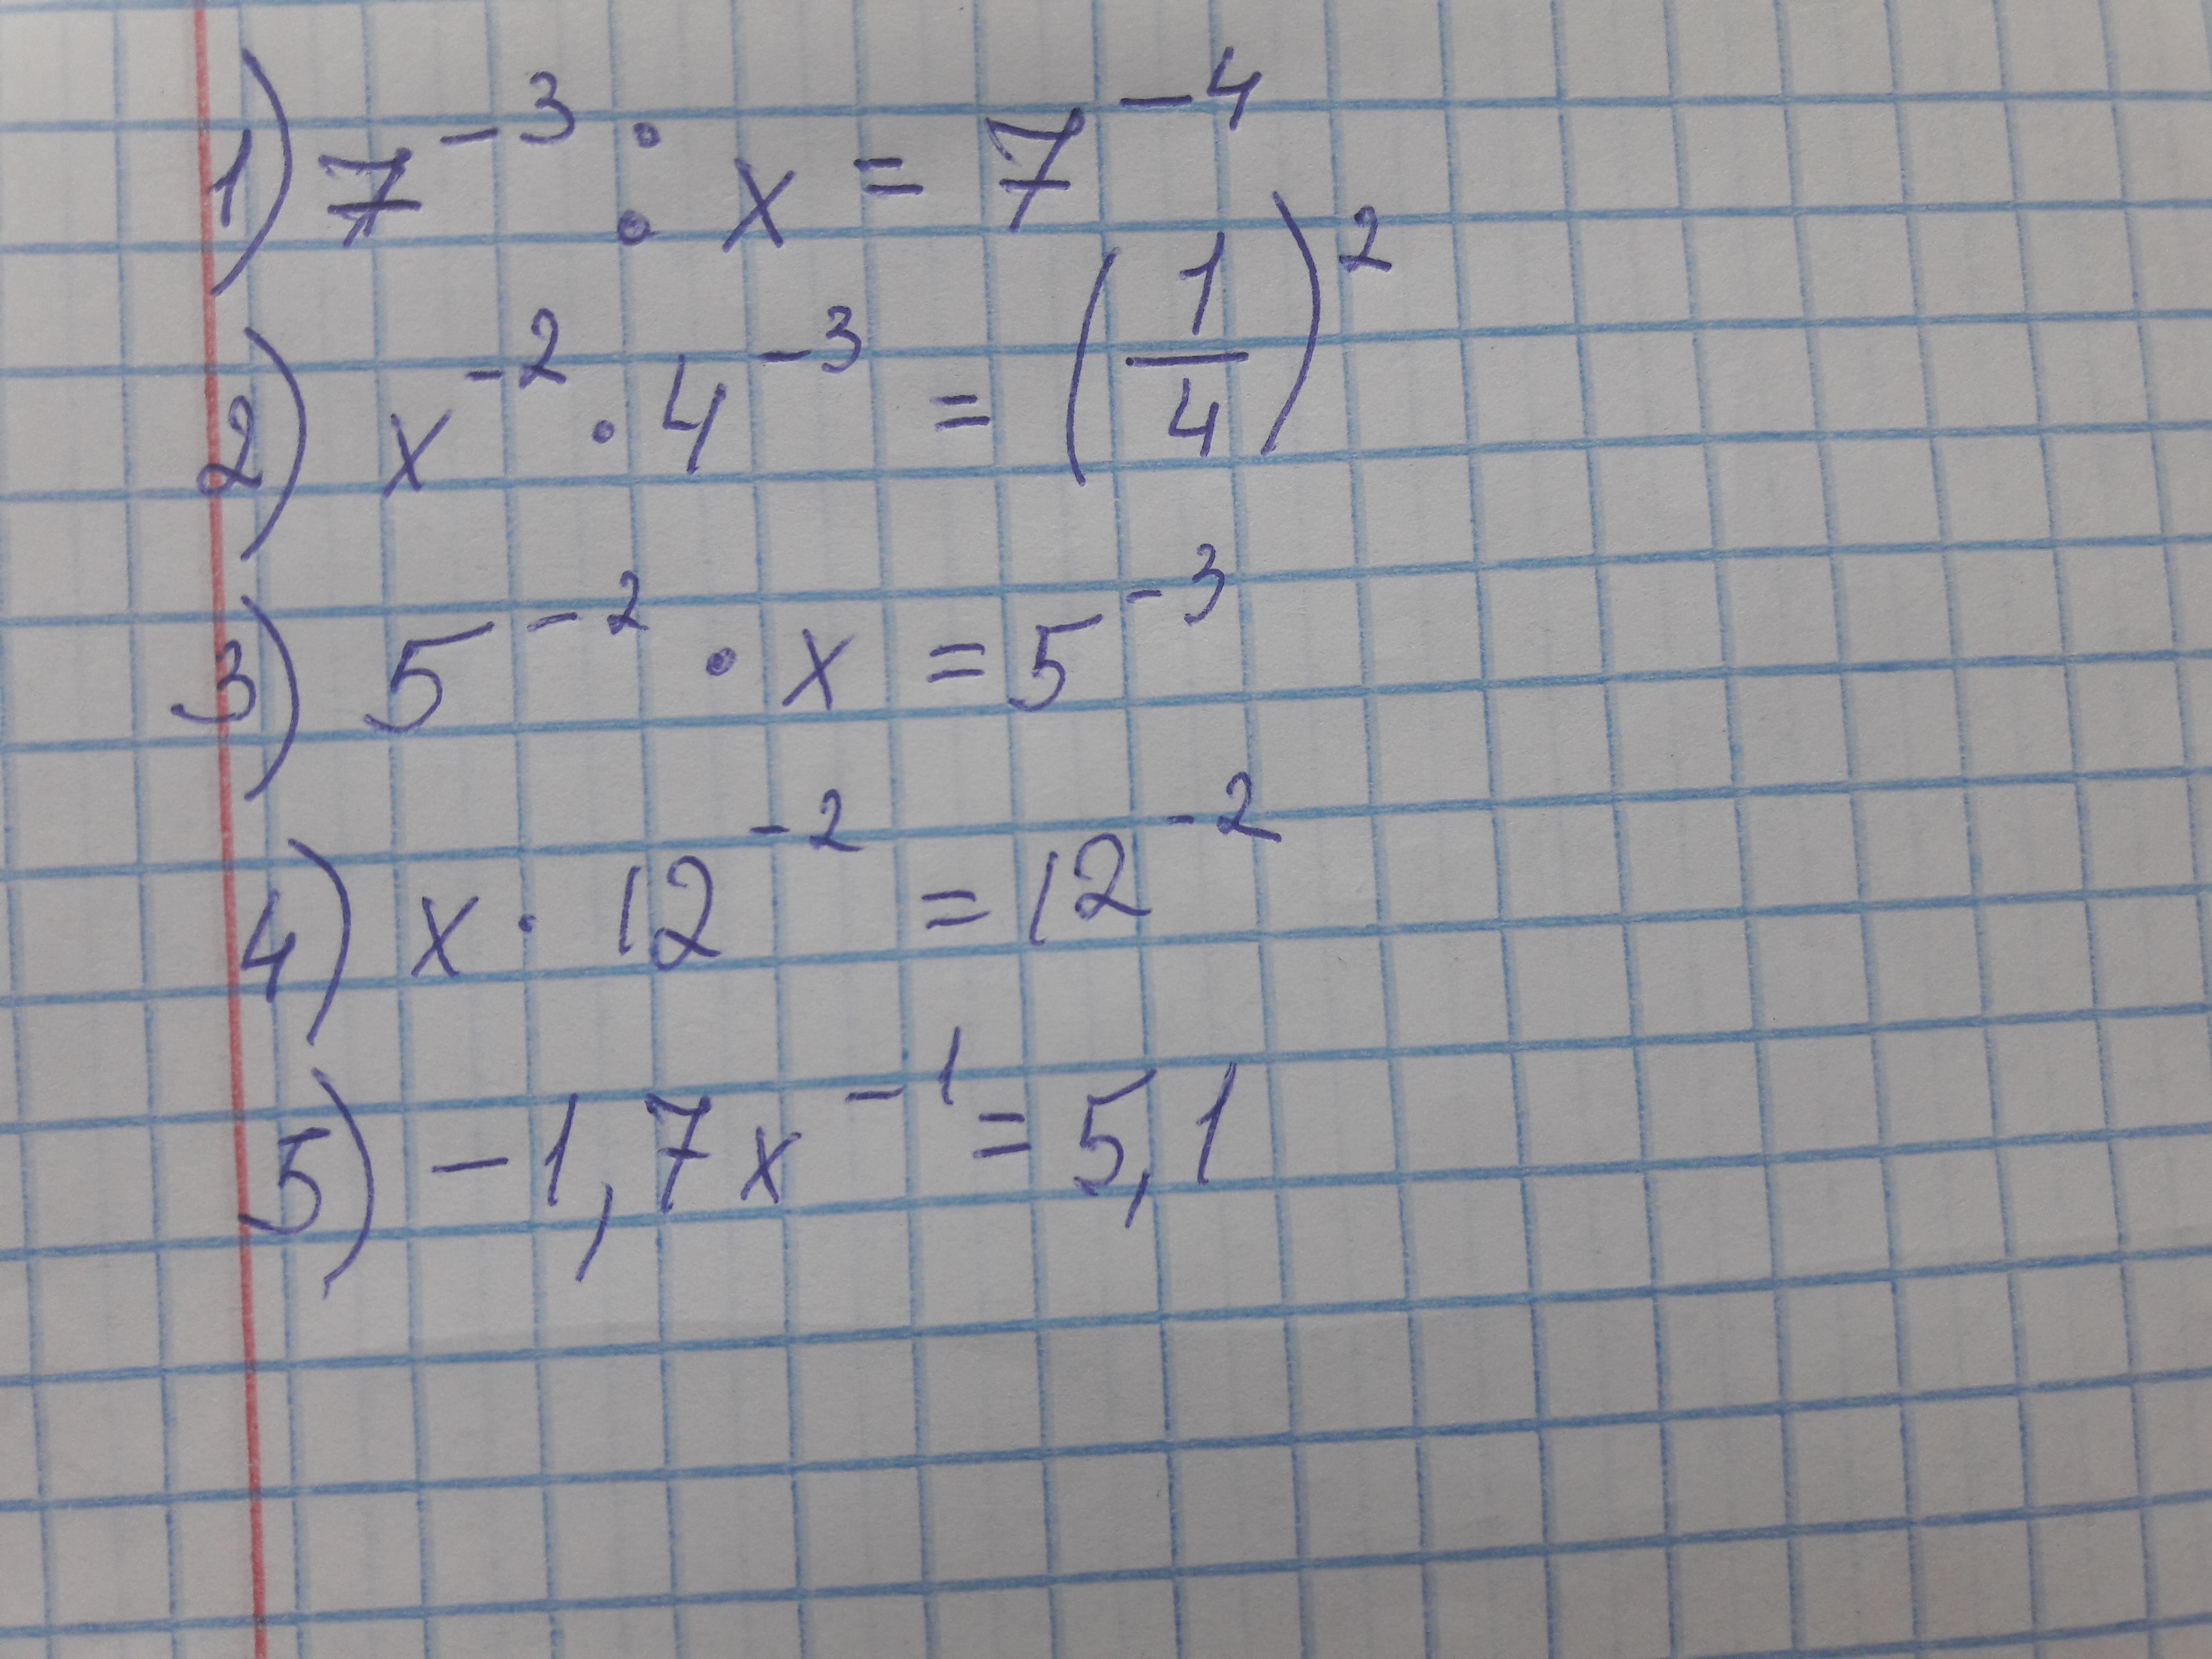 1) 7⁻³ : x = 7⁻⁴
2) x⁻² · 4⁻³ = (1/4)²
3) 5⁻² · x = 5⁻³
4) x · 12⁻² = 12⁻²
5) −1,7x⁻¹ = 5,1